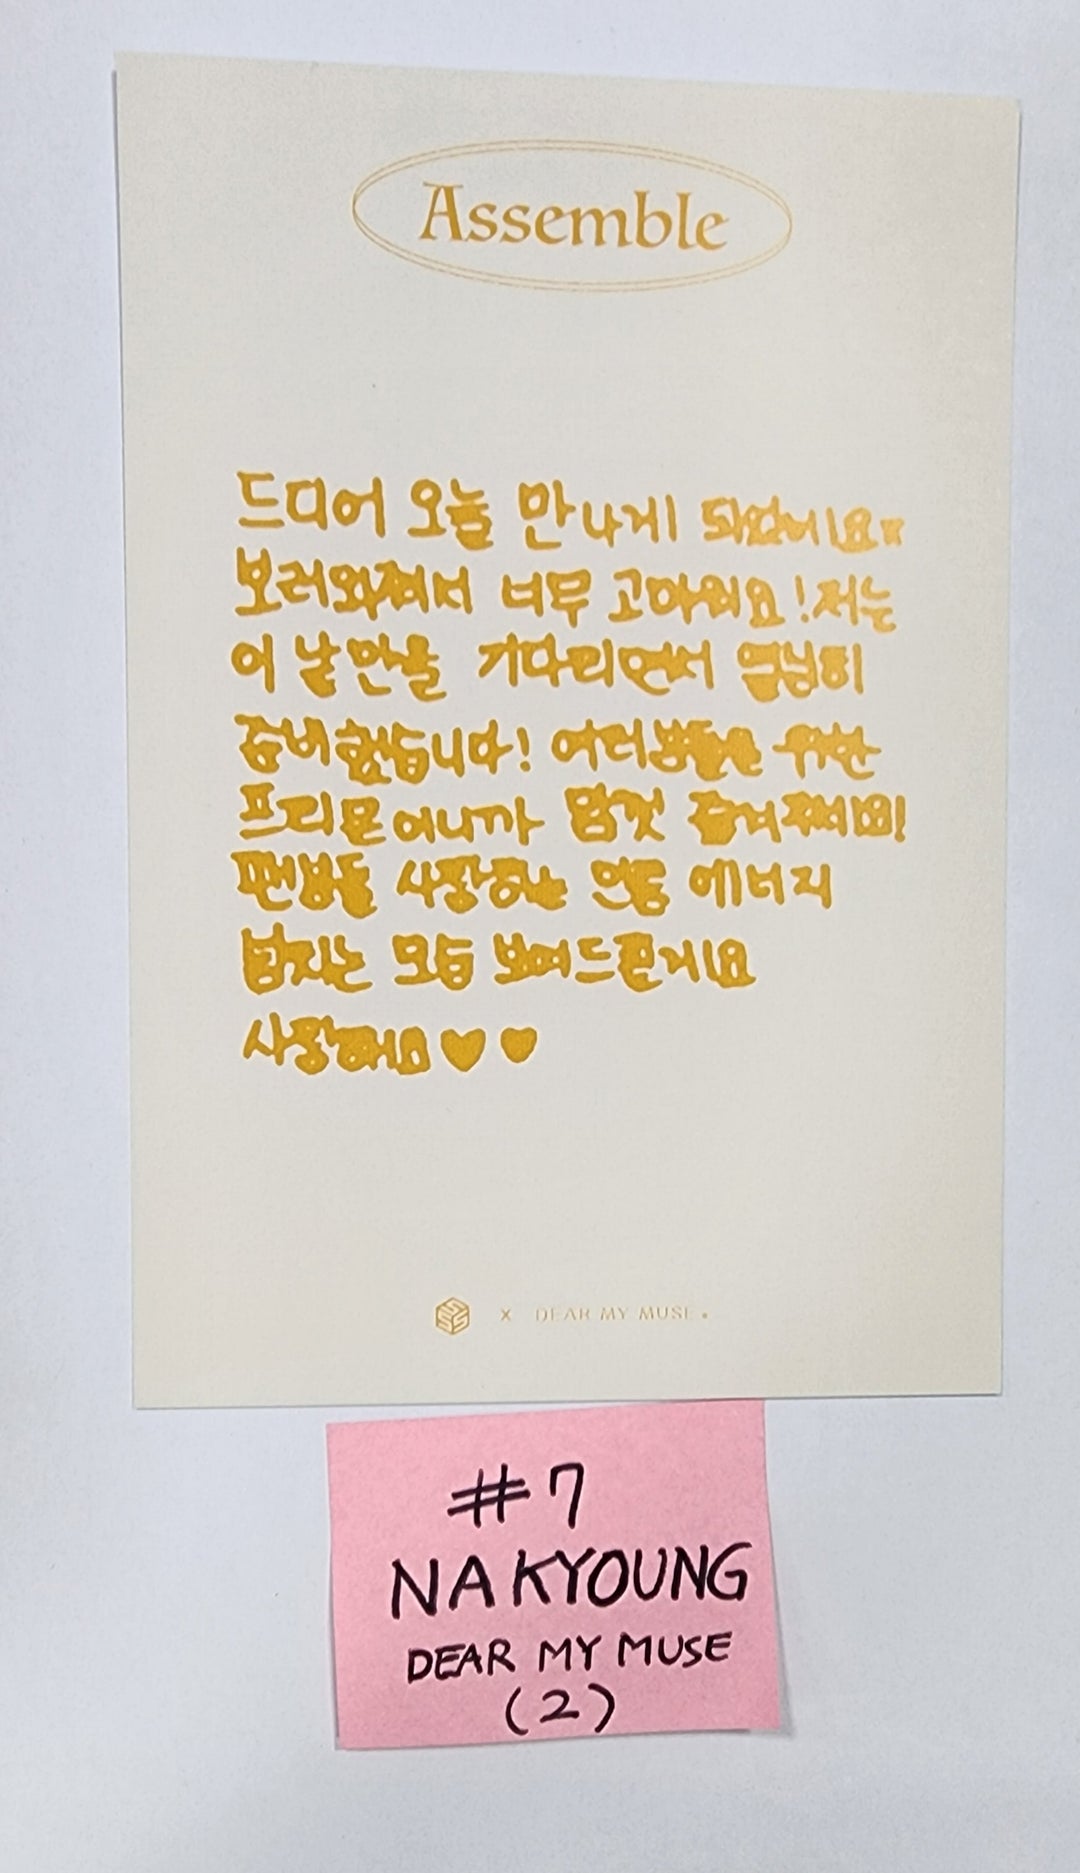 Assemble
드디어 오늘 만나게 되었어요
보러와줘서 너무 고마워요! 저는
이 날만을 기다리면서 열심히
준비했습니다! 여러분들을 위한
프리몬어니까 맘껏 즐겨주세요!
팬분들 사랑하는 만큼 에너지
넘치는 모습 보여드릴게요
사랑해요♥♥
X DEAR MY MUSE.
#7
NAKYOUNG
DEAR MY MUSE
(2)